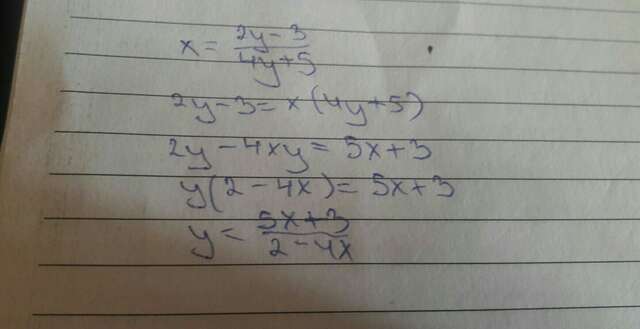 x = \frac{2y-3}{4y+5}
2y-3 = x(4y+5)
2y-4xy = 5x+3
y(2-4x) = 5x+3
y = \frac{5x+3}{2-4x}